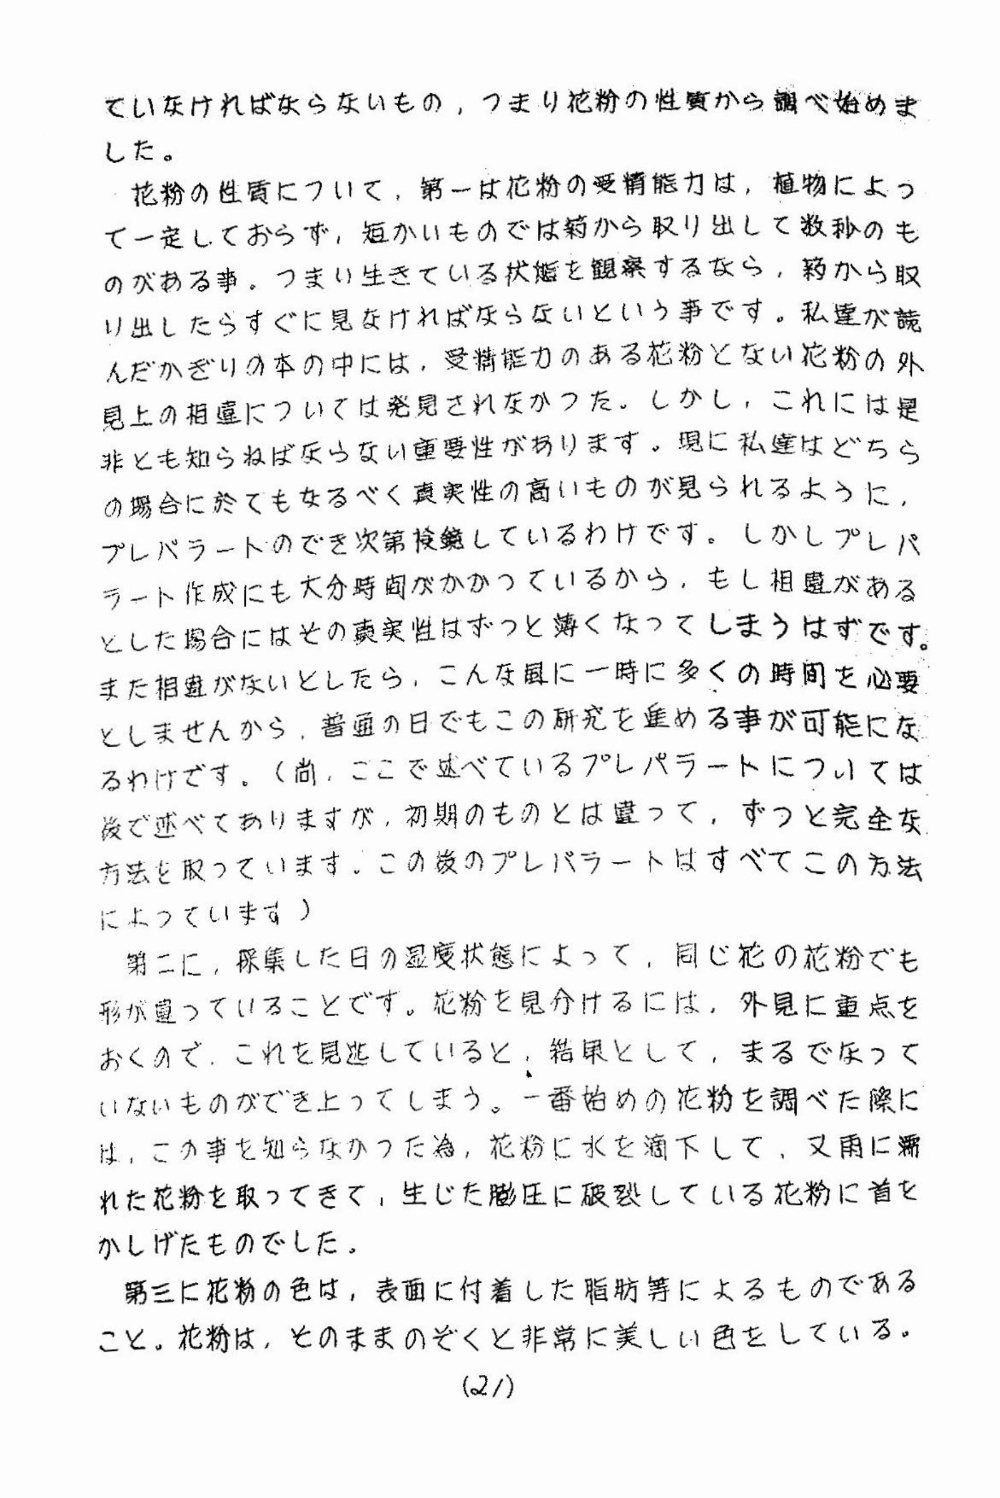 ていなければならないもの,つまり花粉の性質から調べ始めま
した。
花粉の性質について,第一は花粉の受精能力は,植物によっ
て一定しておらず,短かいものでは葯から取り出して数秒のも
のがある事。つまり生きている状態を観察するなら,葯から取
り出したらすぐに見なければならないという事です。私達が読
んだかぎりの本の中には,受精能力のある花粉とない花粉の外
見上の相違については発見されなかった。しかし,これには是
非とも知らねばならない重要性があります。現に私達はどちら
の場合に於てもなるべく真実性の高いものが見られるように,
プレパラートのでき次第検鏡しているわけです。しかしプレパ
ラート作成にも大分時間がかかっているから,もし相違がある
とした場合にはその真実性はずっと薄くなってしまうはずです。
また相違がないとしたら,こんな風に一時に多くの時間を必要
としませんから,普通の日でもこの研究を進める事が可能にな
るわけです。(尚,ここで述べているプレパラートについては
後で述べてありますが,初期のものとは違って,ずっと完全な
方法を取っています。この後のプレパラートはすべてこの方法
によっています)
第二に,採集した日の湿度状態によって,同じ花の花粉でも
形が違っていることです。花粉を見分けるには,外見に重点を
おくので,これを見逃していると,結果として,まるでなって
いないものができ上ってしまう。一番始めの花粉を調べた際に
は,この事を知らなかった為,花粉に水を滴下して,又雨に濡
れた花粉を取ってきて,生じた膨圧に破裂している花粉に首を
かしげたものでした。
第三に花粉の色は,表面に付着した脂肪等によるものである
こと。花粉は,そのままのぞくと非常に美しい色をしている。
(21)